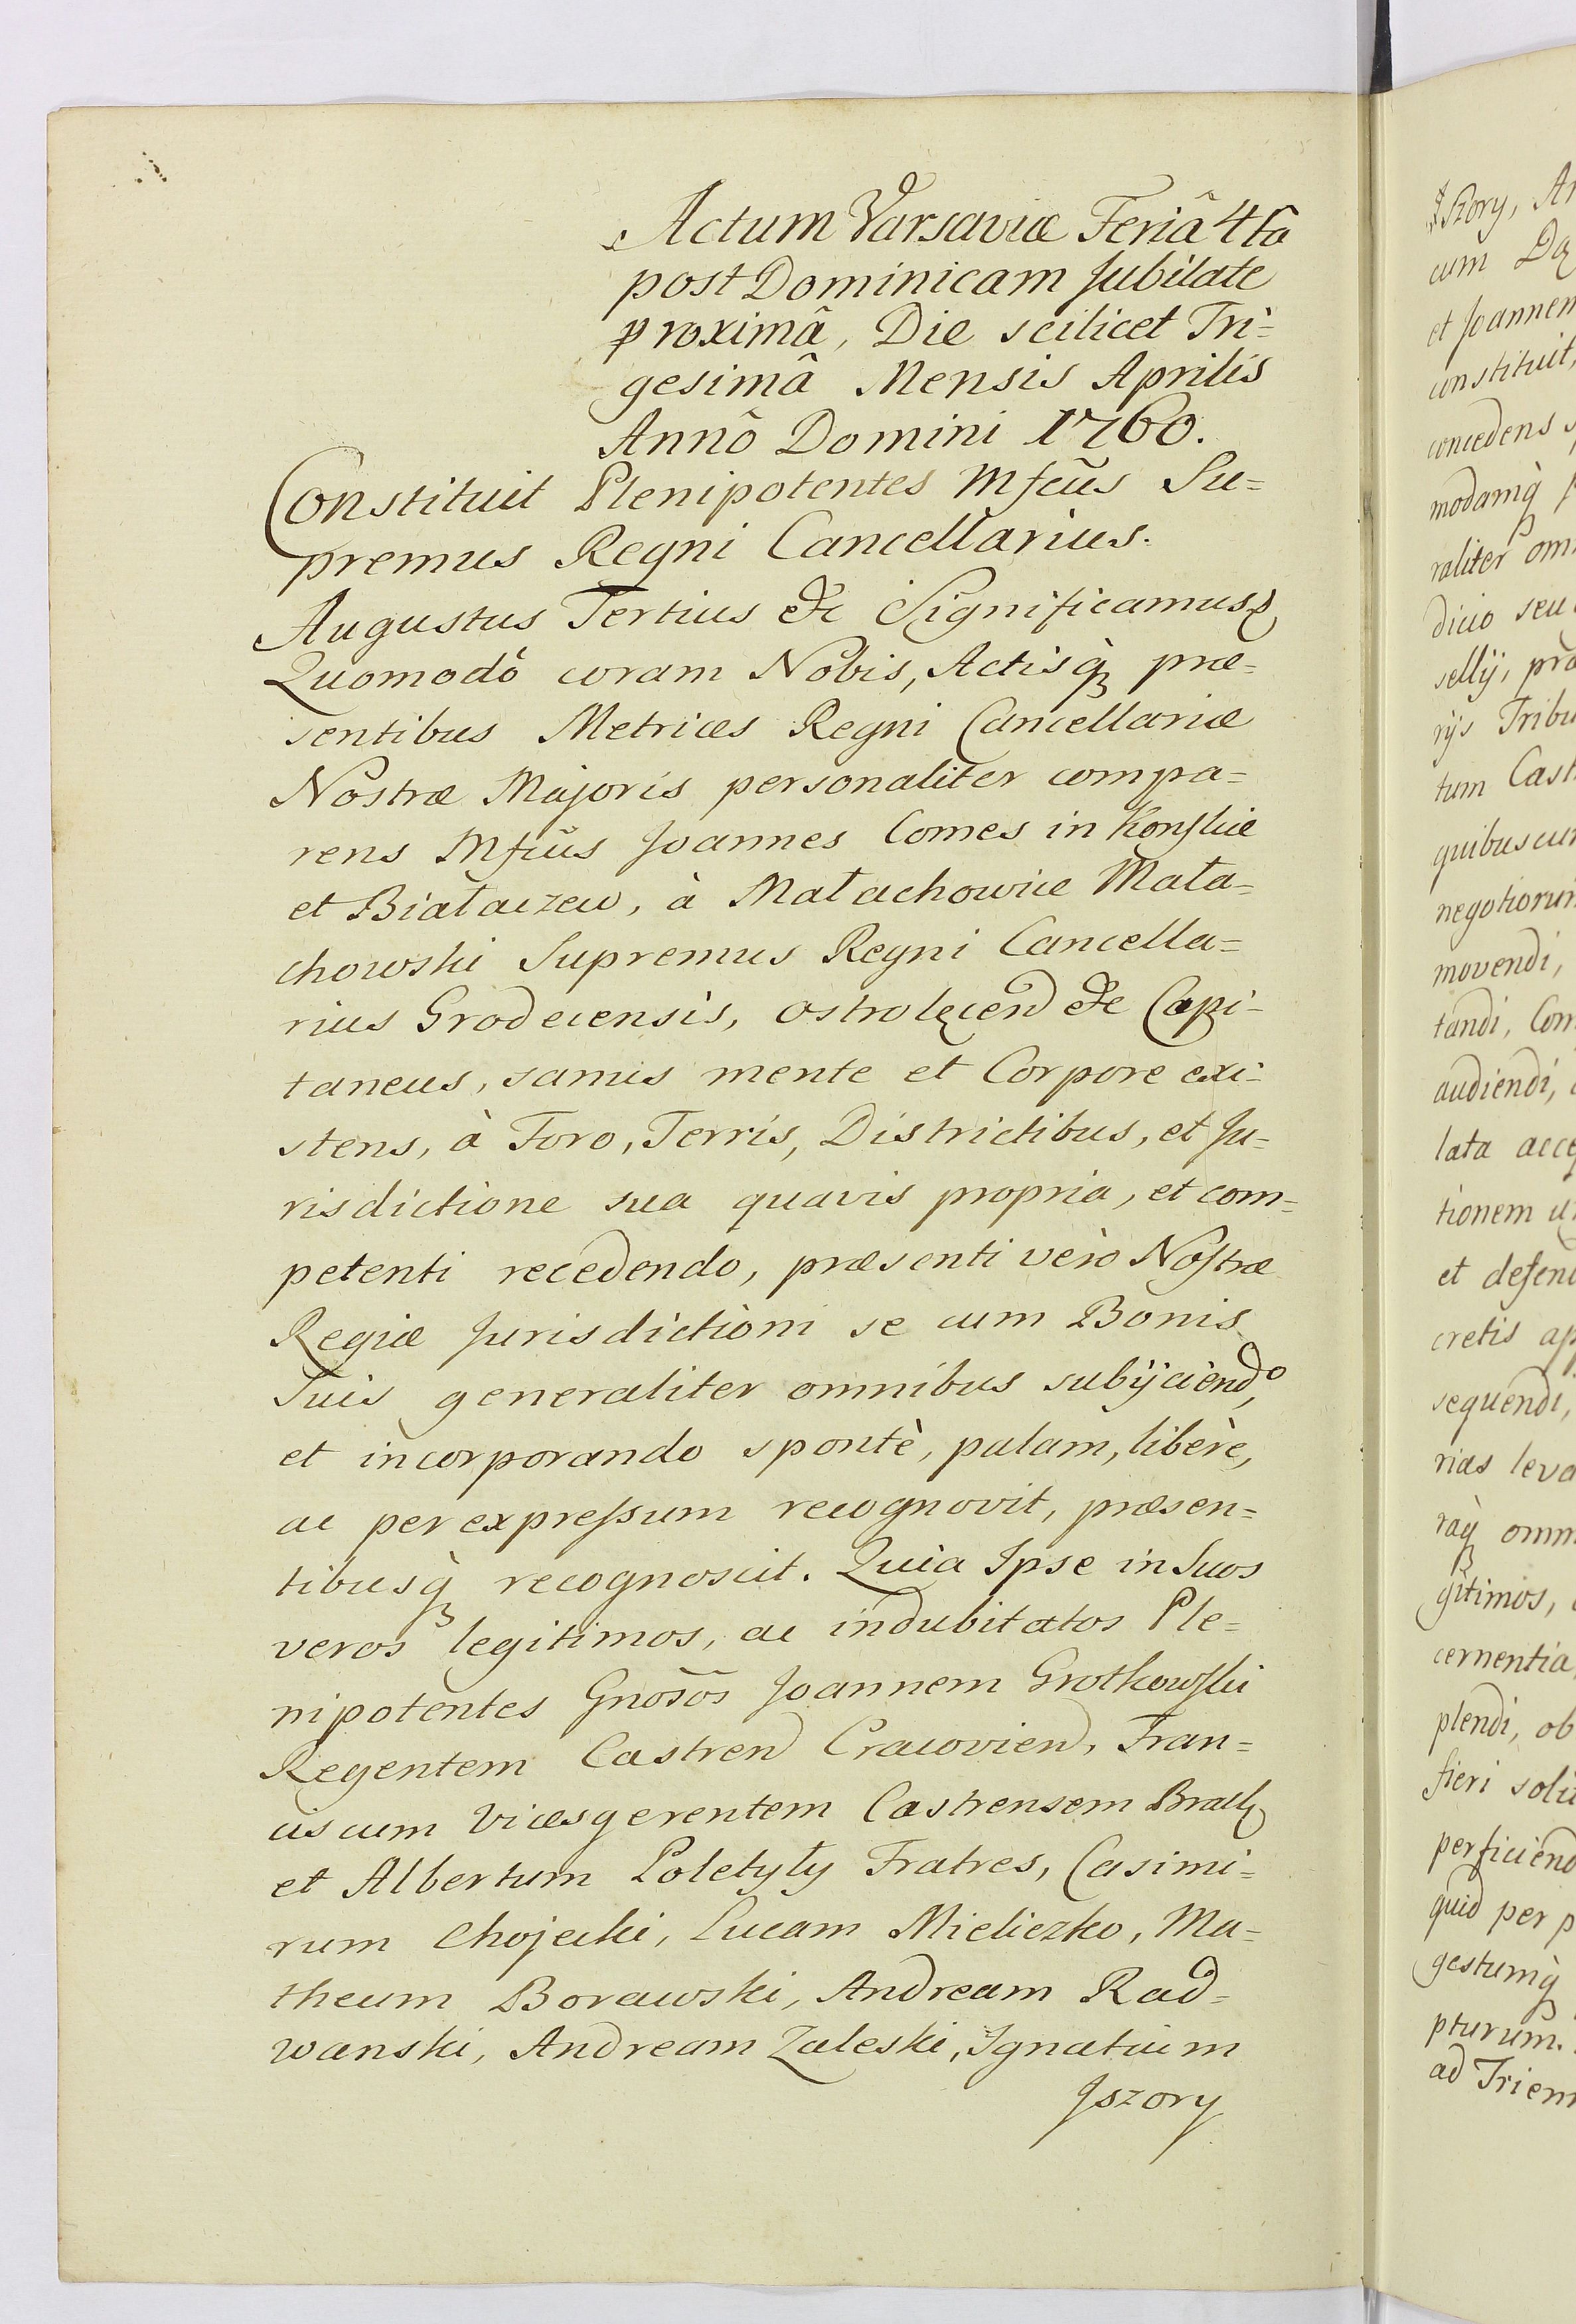 Actum Varsaviæ Feriâ 4tâ
post Dominicam Jubilate
proximâ, Die scilicet Tri=
gesimâ Mensis Aprilis
Annô Domini 1760.
Constituit Plenipotentes Mfcũs Su=
premus Regni Cancellarius.
Augustus Tertius &c Significamus&
Quomodò coram Nobis, Actisq̀ præ=
sentibus Metrices Regni Cancellariæ
Nostræ Majoris personaliter compa=
rens Mfcũs Joannes Comes in Konskie
et Białaczew, à Małachowice Mała=
chowski Supremus Regni Cancella=
rius Grodecensis, Ostrolęcen &c Capi=
taneus, sanus mente et Corpore exi=
stens, à Foro, Terris, Districtibus, et Ju=
risdictione sua quavis propria, et com=
petenti recedendo, præsenti verò Nostræ
Regiæ Jurisdictioni se cum Bonis
Suis generaliter omnibus subijciendo,
et incorporando spontè, palam, liberè,
ac per expressum recognovit, præsen=
tibusq̀ recognoscit. Quia Ipse in Suos
veros legitimos, ac indubitatos Ple=
nipotentes Gnosos Joannem Grotkowski
Regentem Castren Cracovien, Fran=
ciscum Vicesgerentem Castrensem
et Albertum Poletyły Fratres, Casimi=
rum Chojecki, Lucam Mieliczko, Ma=
theum Borawski, Andream Rad=
wanski, Andream Zaleski, Ignatium
Jszory
Jszory, An
cum
et Joannem
constituit,
concedens
modamq̀
raliter om
dicio seu
sellij, præ
rijs Tribu
tum Cast
quibuscun
negotiorum
movendi,
tandi, Com
audiendi,
lata acce
tionem
et defend
cretis ap
sequendi,
rias leva
raq̀ omn
gitimos,
cernentia
plendi, ob
fieri soli
perficiend
quid per p
gestumq̀
pturum.
ad Trienn